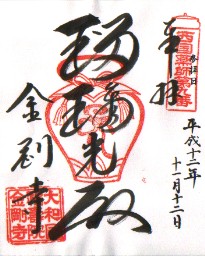 奉拝
西国薬師第九番
参拝日
平成十二年
十一月十二日
瑠璃光殿
金剛寺
大和
金剛寺